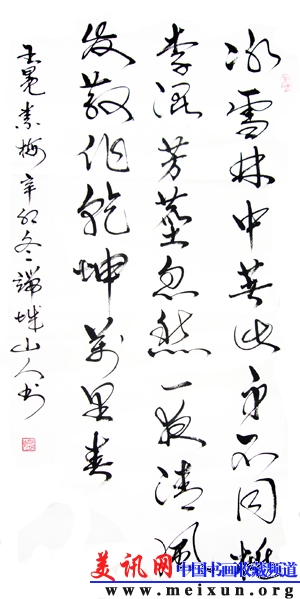 冰雪林中著此身不同桃
李混芳塵忽然一夜清風
发散作乾坤萬里春
王冕素梅 辛卯冬 城山人书
美讯网 中国书画收藏频道
www.meixun.org